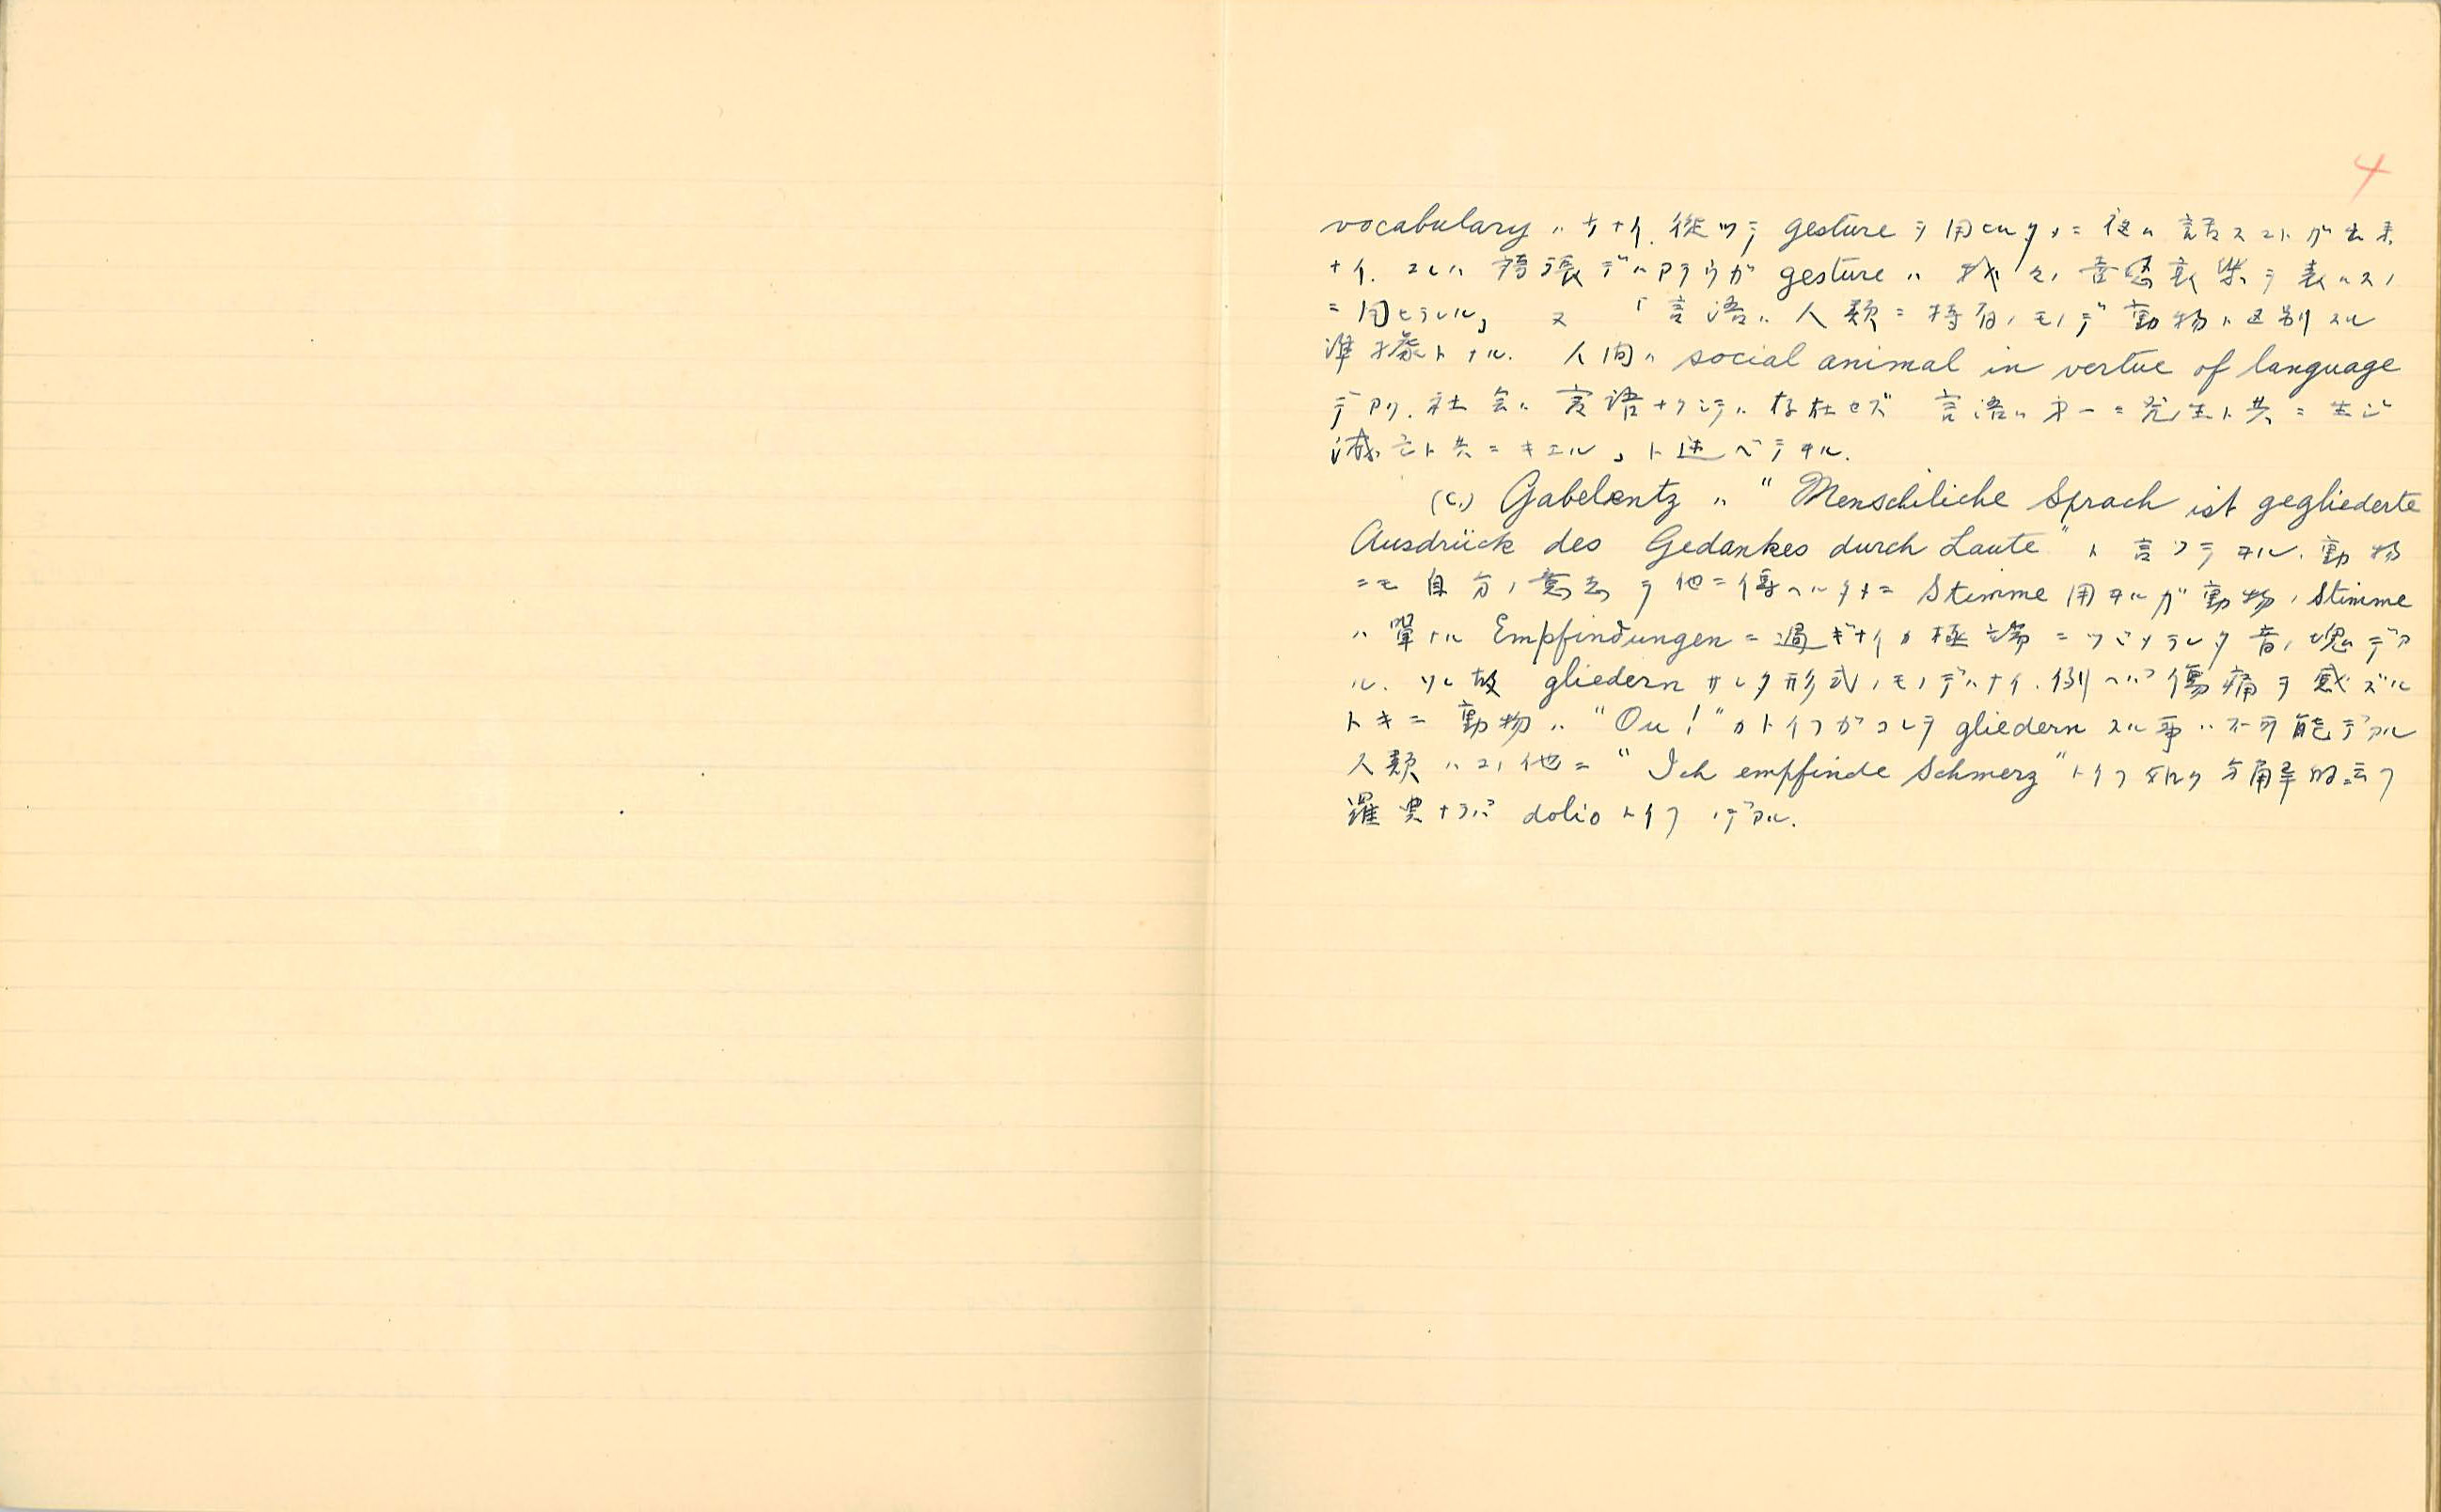 4
vocabulary ハ少ナイ. 従ツテ gesture ヲ用ヒルタメニ夜ハ話スコトガ出来
ナイ. コレハ誇張デハアラウガ gesture ハ我々ノ喜怒哀楽ヲ表ハスノ
ニ用ヒラレル」 又 「言語ハ人類ニ特有ノモノデ動物ト区別スル
準拠トナル. 人間ハ social animal in vertue of language
デアリ. 社会ハ言語ナクシテハ存在セズ 言語ハ第一ニ発生ト共ニ生ジ
滅亡ト共ニキエル」ト述ベテヰル.
(C.) Gabelentz ハ "Menschliche Sprach ist gegliederte
Ausdrück des Gedankes durch Laute" ト言ツテヰル. 動物
ニモ自分ノ意志ヲ他ニ傳ヘルタメニ Stimme 用ヰルガ動物ノ Stimme
ハ單ナル Empfindungen ニ過ギナイカ極端ニツヾメラレタ音ノ塊デア
ル. ソレ故 gliedern サレタ形式ノモノデハナイ. 例ヘバ傷痛ヲ感ズル
トキニ動物ハ "Ou!" カトイフガコレヲ gliedern スル事ハ不可能デアル
人類ハコノ他ニ "Ich empfinde Schmerz" トイフ如ク分解的ニ云フ
羅典ナラバ dolio トイフノデアル.